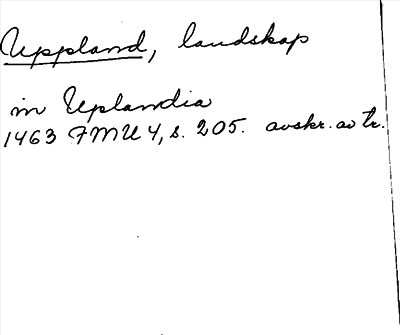 Uppland, landskap
in Uplandia
1463 FMU 4, s. 205. avskr. av tr.